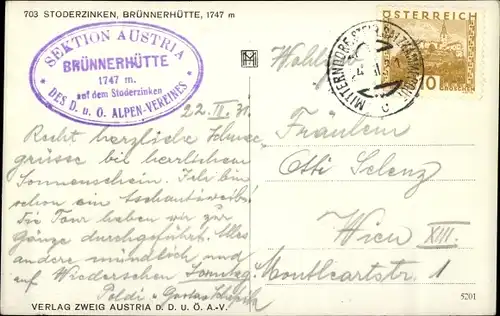 703 STODERZINKEN, BRÜNNERHÜTTE, 1747 m
SEKTION AUSTRIA
BRÜNNERHÜTTE
1747 m.
auf dem Stoderzinken
DES D. u. Ö. ALPEN-VEREINES
22. II. 31.
Recht herzliche Schnee-
grüsse bei herrlichem
Sonnenschein. Ich bin
schon ein
Die Tour haben wir zur
Gänze durchgeführt. Alles
andere mündlich und
auf Wiedersehen Sonntag.
Poldi
VERLAG ZWEIG AUSTRIA D. D. U. Ö. A.-V.
MITTERNDORF
ÖSTERREICH
10
GROSCHEN
Fräulein
Otti
Wien XIII.
1
5201